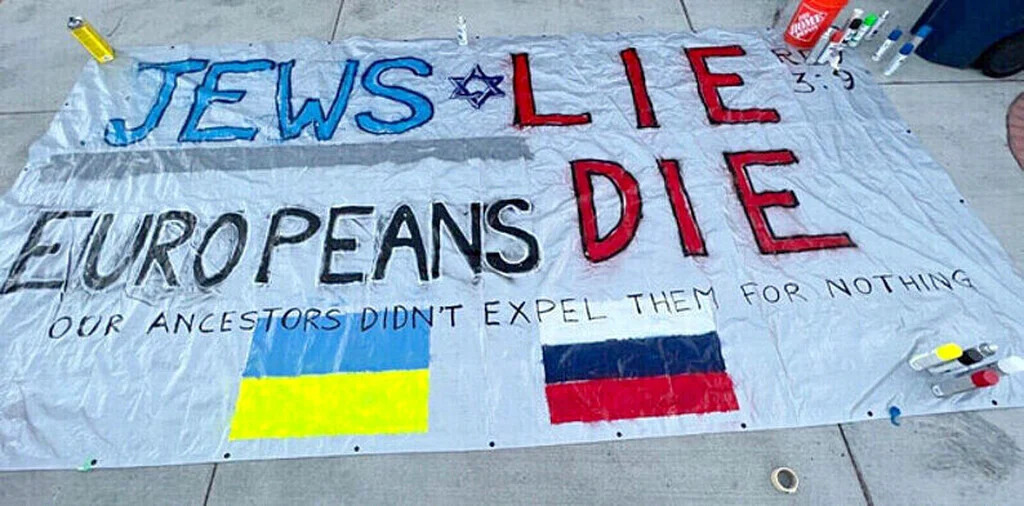 JEWS LIE
REV
3:9
DIE
EUROPEANS
OUR ANCESTORS DIDN'T EXPEL THEM FOR NOTHING
THE
HOME
DEPOT